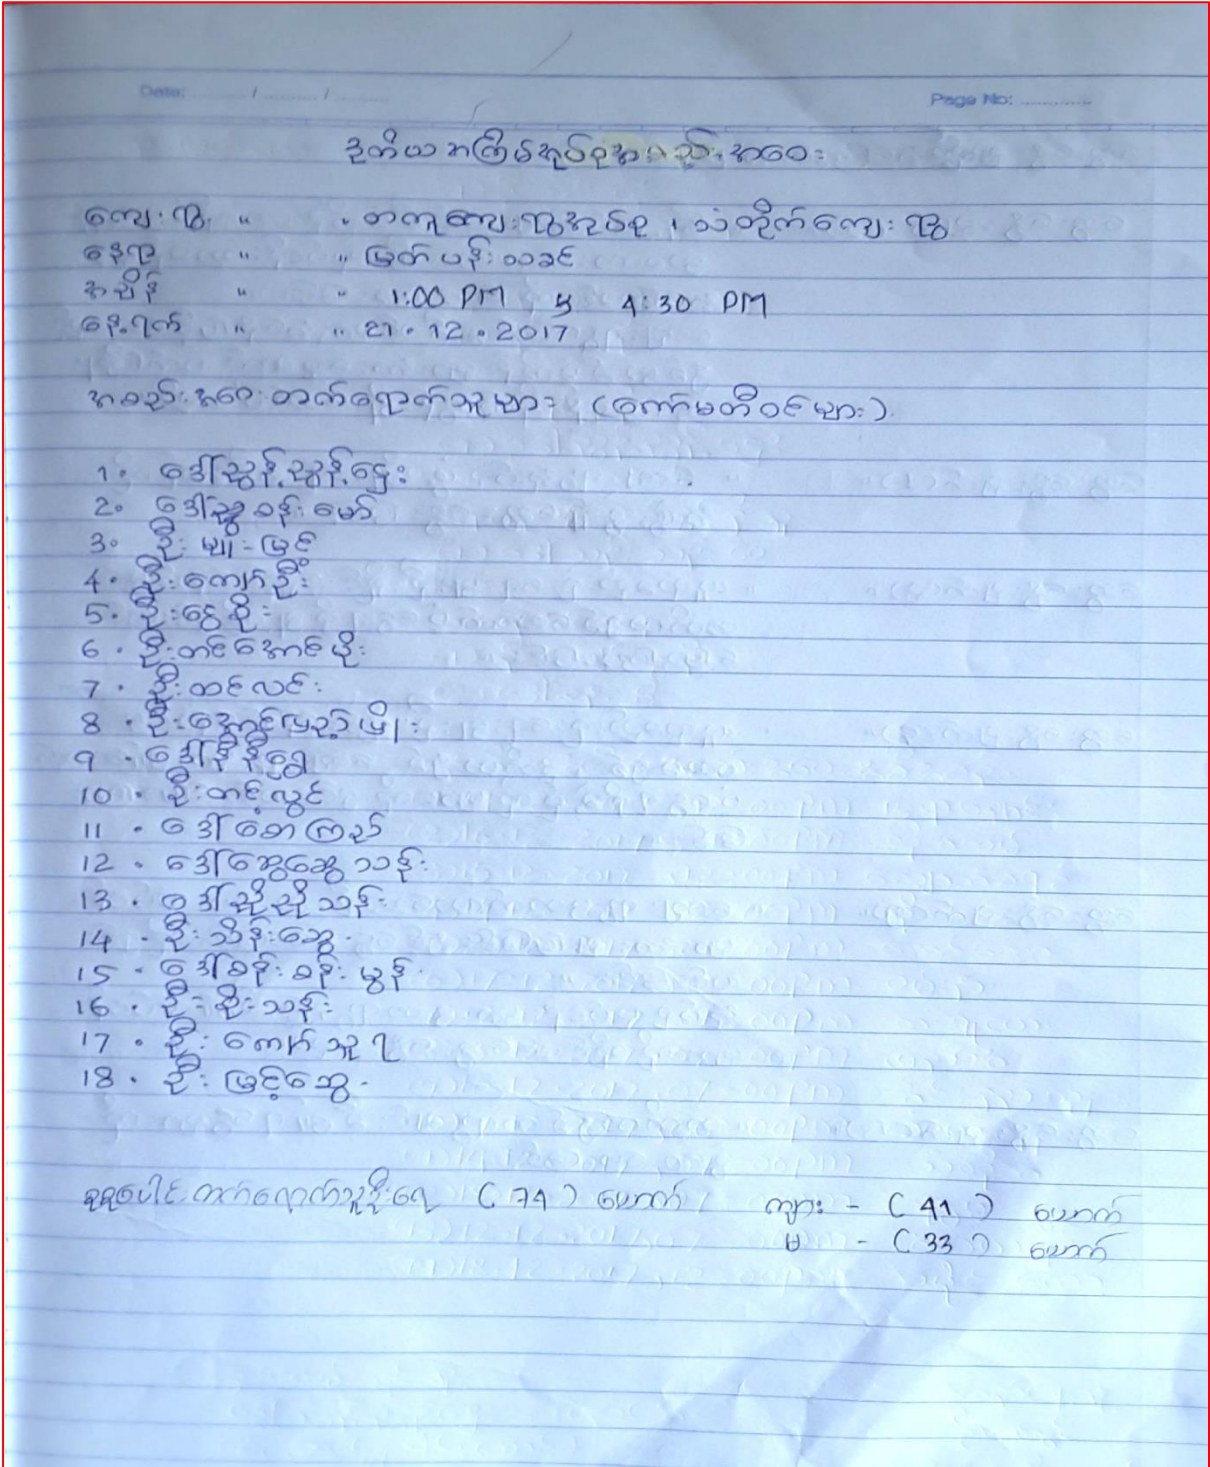 Date: ........ / ........ / ........
Page No: ............
ဒုတိယအကြိမ်အုပ်စုအစည်းအဝေး
ကျေးရွာ " " တကူကျေးရွာအုပ်စု ၊ သံတိုက်ကျေးရွာ
နေရာ " " မြတ်ပန်းသခင်
အချိန် " " 1:00 PM မှ 4:30 PM
နေ့ရက် " " 21.12.2017
အစည်းအဝေးတက်ရောက်သူများ (ကော်မတီဝင်များ)
1. ဒေါ်ညွန့်ညွန့်ဌေး
2. ဒေါ်ညွန့်ခန်းမော်
3. ဦးမျိုးမြင့်
4. ဦးကျော်ဦး
5. ဦးငွေစိုး
6. ဦးတင်အောင်စိုး
7. ဦးထင်လင်း
8. ဦးအောင်ပြည့်ဖြိုး
9. ဒေါ်နီနီရွှေ
10. ဦးတင့်လွင်
11. ဒေါ်စောကြည်
12. ဒေါ်ဆွေဆွေသန်း
13. ဒေါ်ညိုညိုသန်း
14. ဦးသိန်းဆွေ
15. ဒေါ်ခန်းခန်းမွန်
16. ဦးစိုးသန်း
17. ဦးကျော်သူရ
18. ဦးမြင့်ဆွေ
စုစုပေါင်းတက်ရောက်သူဦးရေ (74) ယောက် ကျား - (41) ယောက်
မ - (33) ယောက်